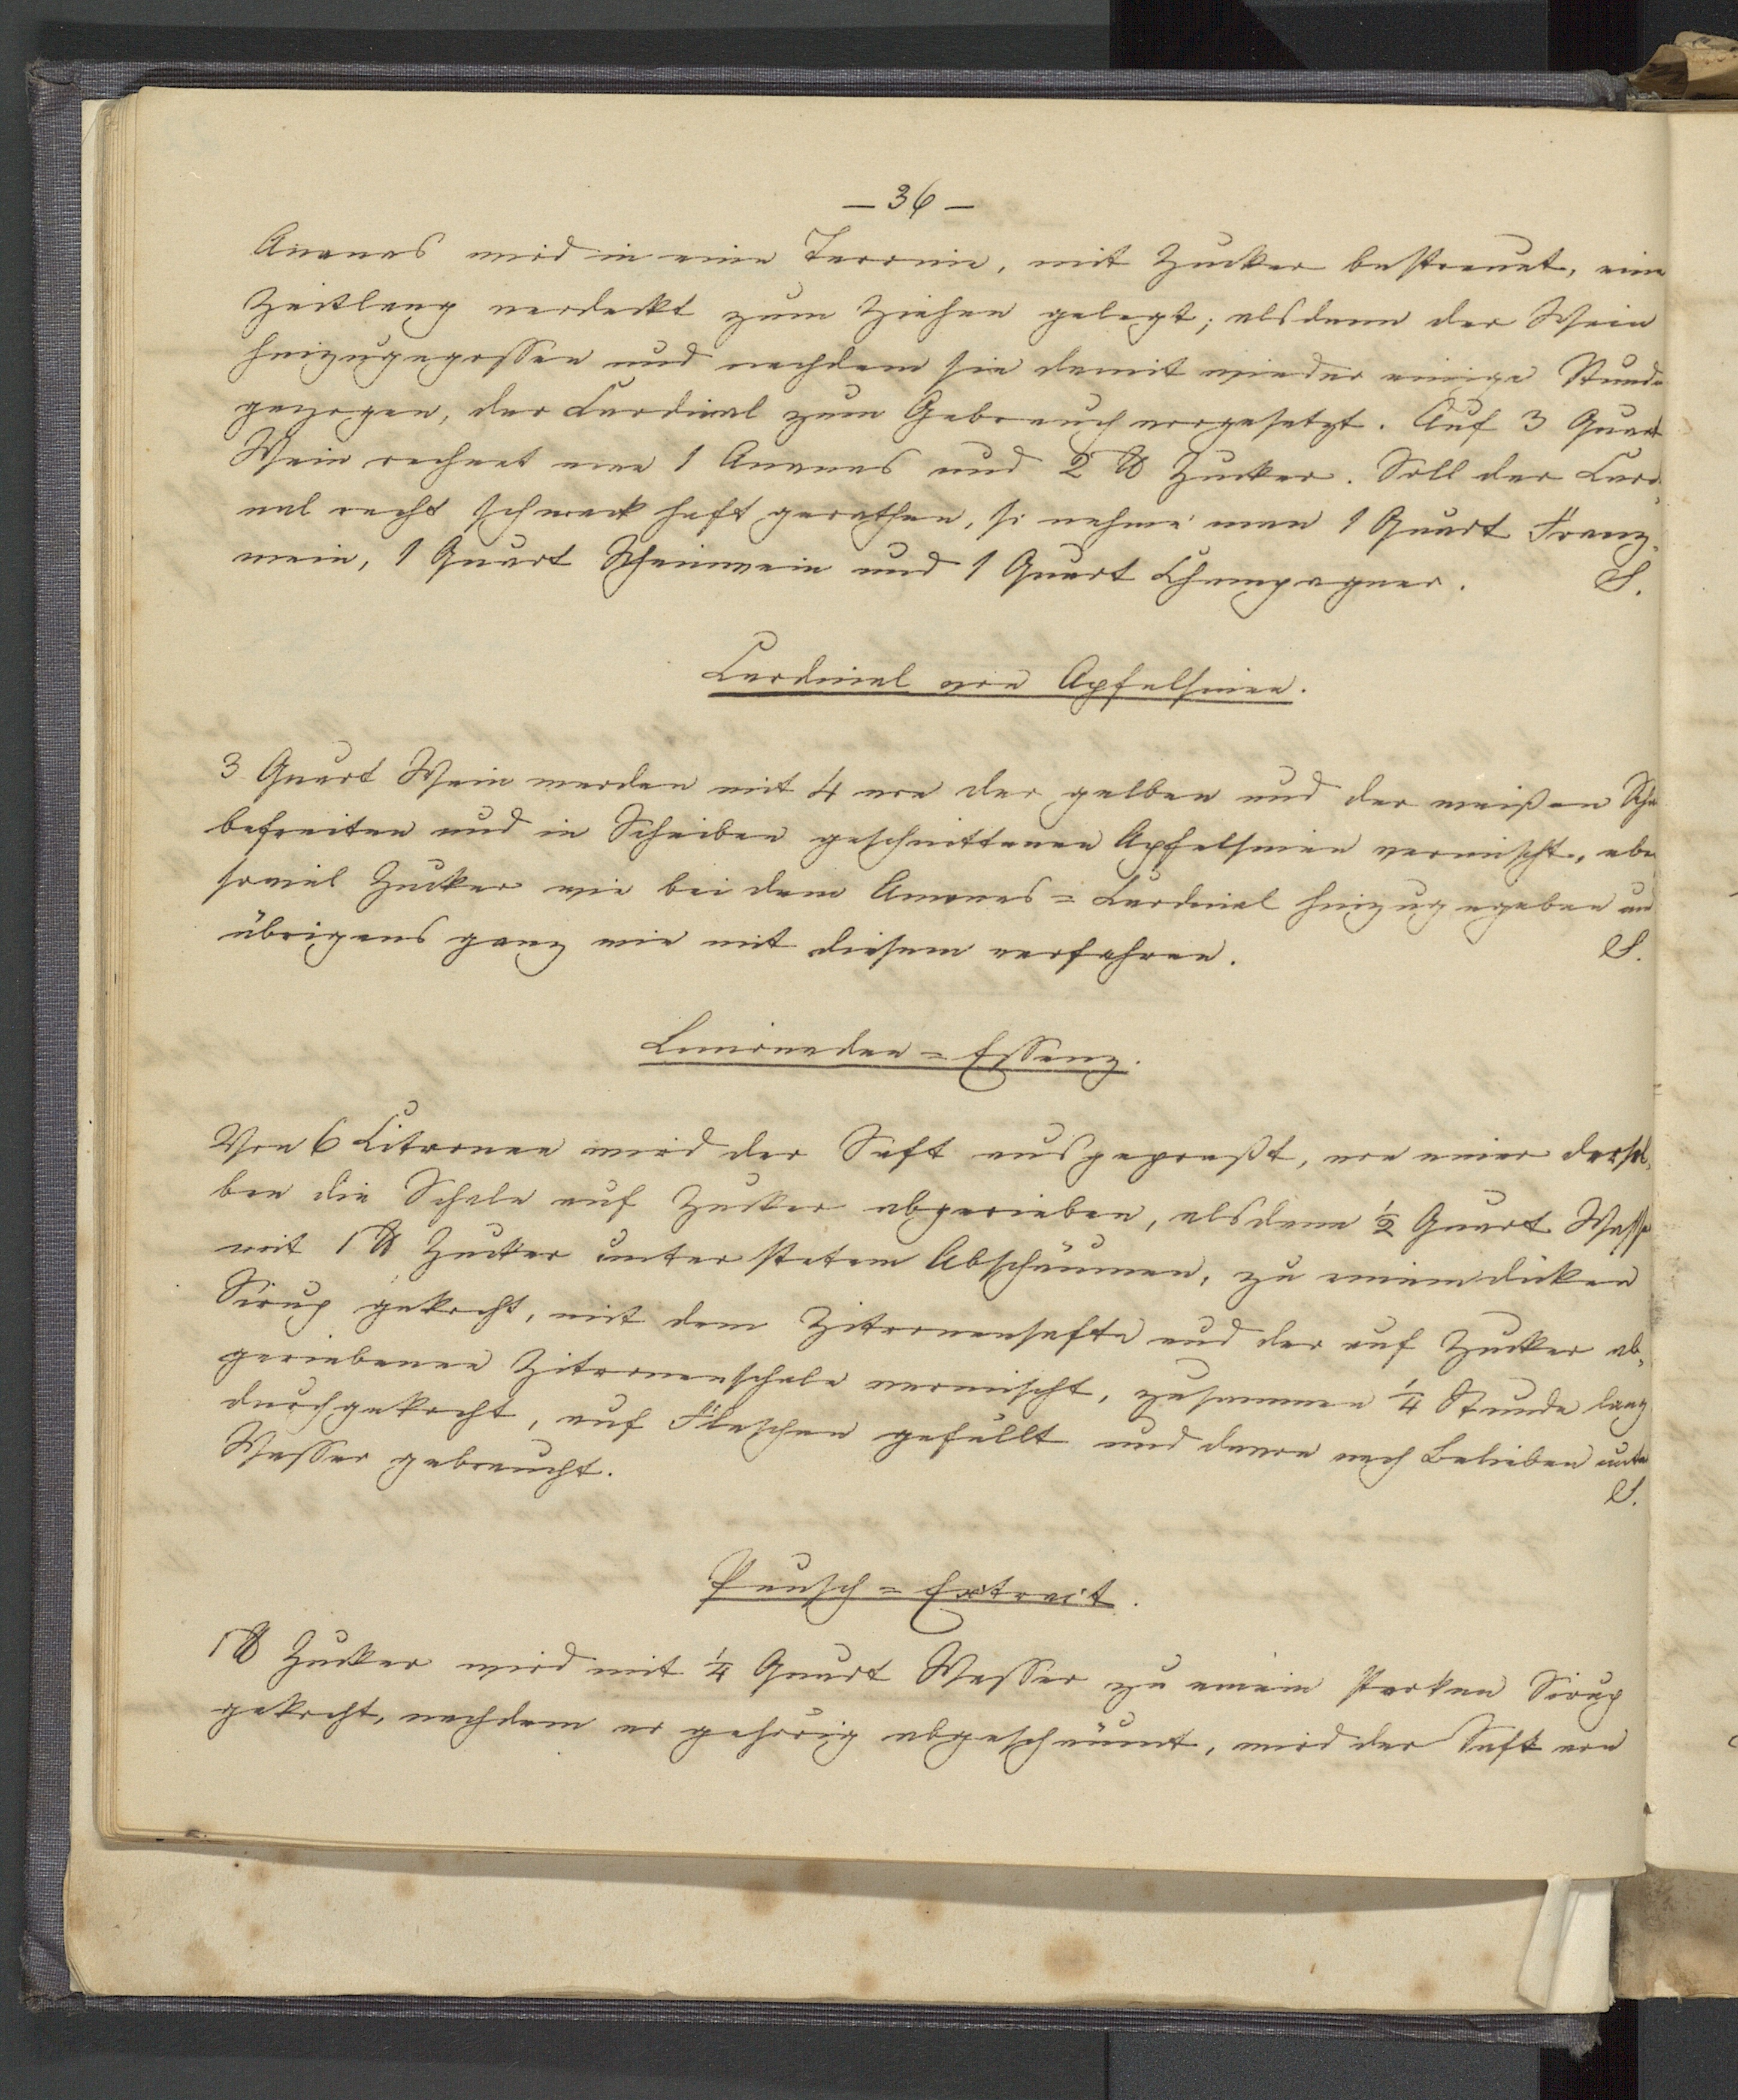 — 36 —
Ananas wird in eine Terrine, mit Zucker bestreuet, eine
Zeitlang verdeckt zum Ziehen gelegt; alsdann der Wein
hinzugegossen und nachdem sie damit wieder einige Stunde
gezogen, der Cardinal zum Gebrauch vorgesetzt. Auf 3 Quart
Wein rechnet man 1 Ananas und 2 ℔ Zucker. Soll der Cardi-
nal recht schmeckhaft gerathen, so nehme man 1 Quart Franz-
wein, 1 Quart Rheinwein und 1 Quart Champagner. S.
Cardinal von Apfelsinen.
3 Quart Wein werden mit 4 von der gelben und der weißen Scha
befreiten und in Scheiben geschnittenen Apfelsinen vermischt, eben
soviel Zucker wie bei dem Ananas=Cardinal hinzugegeben un
übrigens ganz wie mit diesem verfahren. S.
Limonaden=Essenz.
Von 6 Citronen wird der Saft ausgepreßt, von einer dersel-
ben die Schale auf Zucker abgerieben, alsdann ½ Quart Wasse
mit 1 ℔ Zucker unter stetem Abschäumen, zu einem dicken
Sirup gekocht, mit dem Zitronensafte und der auf Zucker ab-
geriebenen Zitronenschale vermischt, zusammen ¼ Stunde lang
durchgekocht, auf Flaschen gefüllt und davon nach Belieben unte
Wasser gebraucht. S.
Punsch=Extrait.
1 ℔ Zucker wird mit ¼ Quart Wasser zu einem starken Sirup
gekocht, nachdem er gehörig abgeschäumt, wird der Saft von